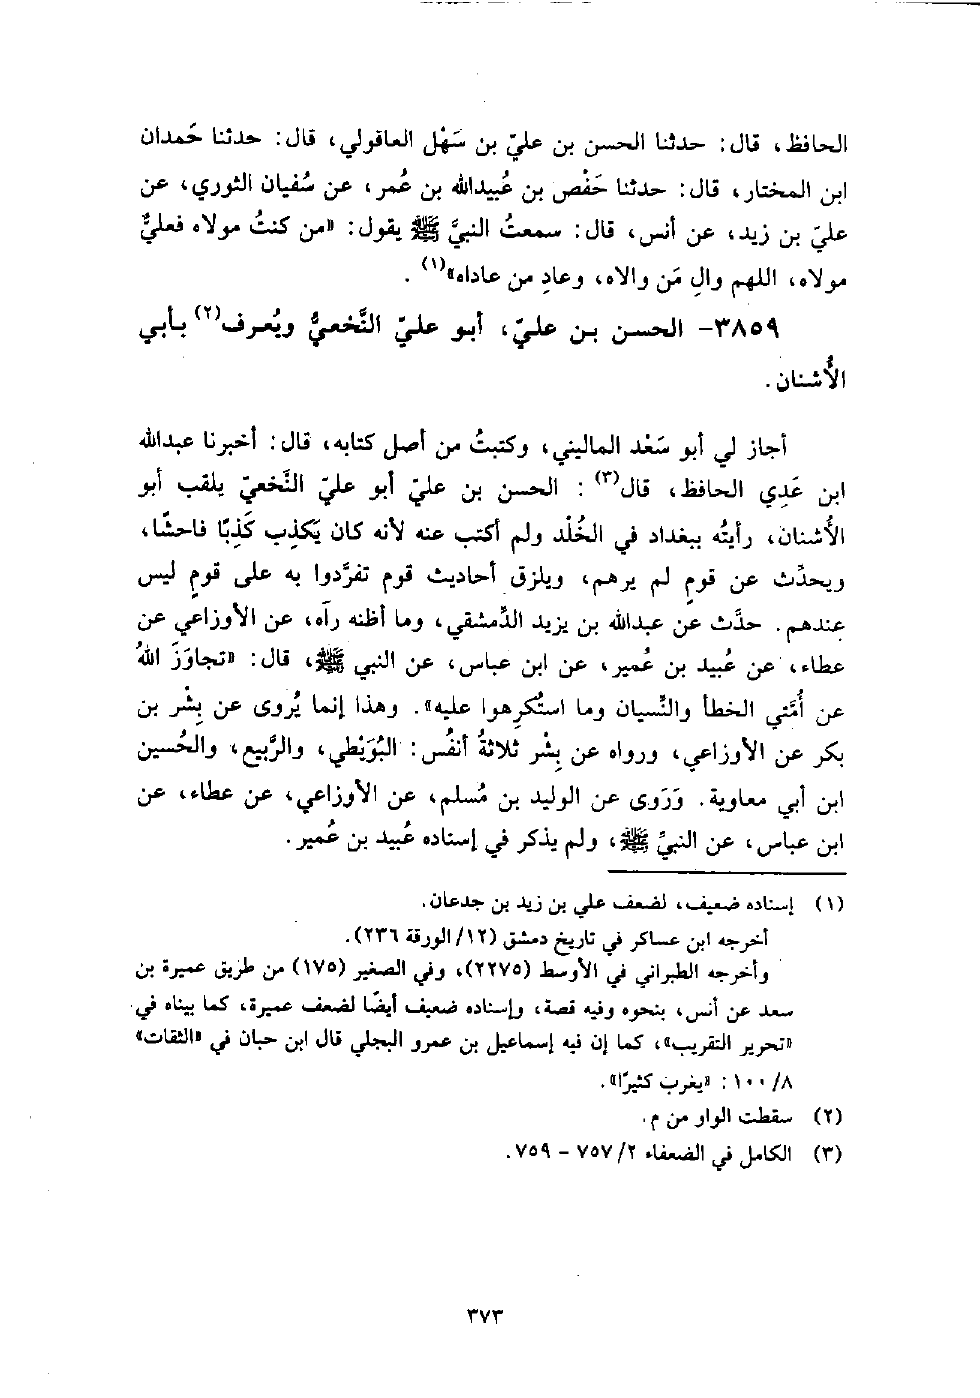 الحافظ، قال: حدثنا الحسن بن عليّ بن سَهْل العاقولي، قال: حدثنا حَمدان
ابن المختار، قال: حدثنا حَفْص بن عُبيدالله بن عُمر، عن سُفيان الثوري، عن
عليّ بن زيد، عن أنس، قال: سمعتُ النبيَّ ﷺ يقول: «من كنتُ مولاه فعليٌّ
مولاه، اللهم والِ مَن والاه، وعادِ من عاداه»(١) .
٣٨٥٩- الحسن بن عليّ، أبو عليّ النَّخعيُّ ويُعرف(٢) بأبي
الأُشنان.
أجاز لي أبو سَعْد الماليني، وكتبتُ من أصل كتابه، قال: أخبرنا عبدالله
ابن عَدِي الحافظ، قال(٣) : الحسن بن عليّ أبو عليّ النَّخعيّ يلقب أبو
الأُشنان، رأيتُه ببغداد في الخُلْد ولم أكتب عنه لأنه كان يَكذِب كَذِبًا فاحشًا،
ويحدِّث عن قومٍ لم يرهم، ويلزق أحاديث قوم تفرَّدوا به على قومٍ ليس
عندهم. حدَّث عن عبدالله بن يزيد الدِّمشقي، وما أظنه رآه، عن الأوزاعي عن
عطاء، عن عُبيد بن عُمير، عن ابن عباس، عن النبي ﷺ، قال: «تجاوَزَ اللهُ
عن أُمَّتي الخطأ والنِّسيان وما استُكرِهوا عليه». وهذا إنما يُروى عن بِشْر بن
بكر عن الأوزاعي، ورواه عن بِشْر ثلاثةُ أنفُس: البُوَيْطي، والرَّبيع، والحُسين
ابن أبي معاوية. وَرَوى عن الوليد بن مُسلم، عن الأوزاعي، عن عطاء، عن
ابن عباس، عن النبيِّ ﷺ، ولم يذكر في إسناده عُبيد بن عُمير.
(١) إسناده ضعيف، لضعف علي بن زيد بن جدعان.
أخرجه ابن عساكر في تاريخ دمشق (١٢/ الورقة ٢٣٦).
وأخرجه الطبراني في الأوسط (٢٢٧٥)، وفي الصغير (١٧٥) من طريق عميرة بن
سعد عن أنس، بنحوه وفيه قصة، وإسناده ضعيف أيضًا لضعف عميرة، كما بيناه في
«تحرير التقريب»، كما إن فيه إسماعيل بن عمرو البجلي قال ابن حبان في «الثقات»
٨/ ١٠٠ : «يغرب كثيرًا».
(٢) سقطت الواو من م.
(٣) الكامل في الضعفاء ٢/ ٧٥٧ - ٧٥٩.
٣٧٣